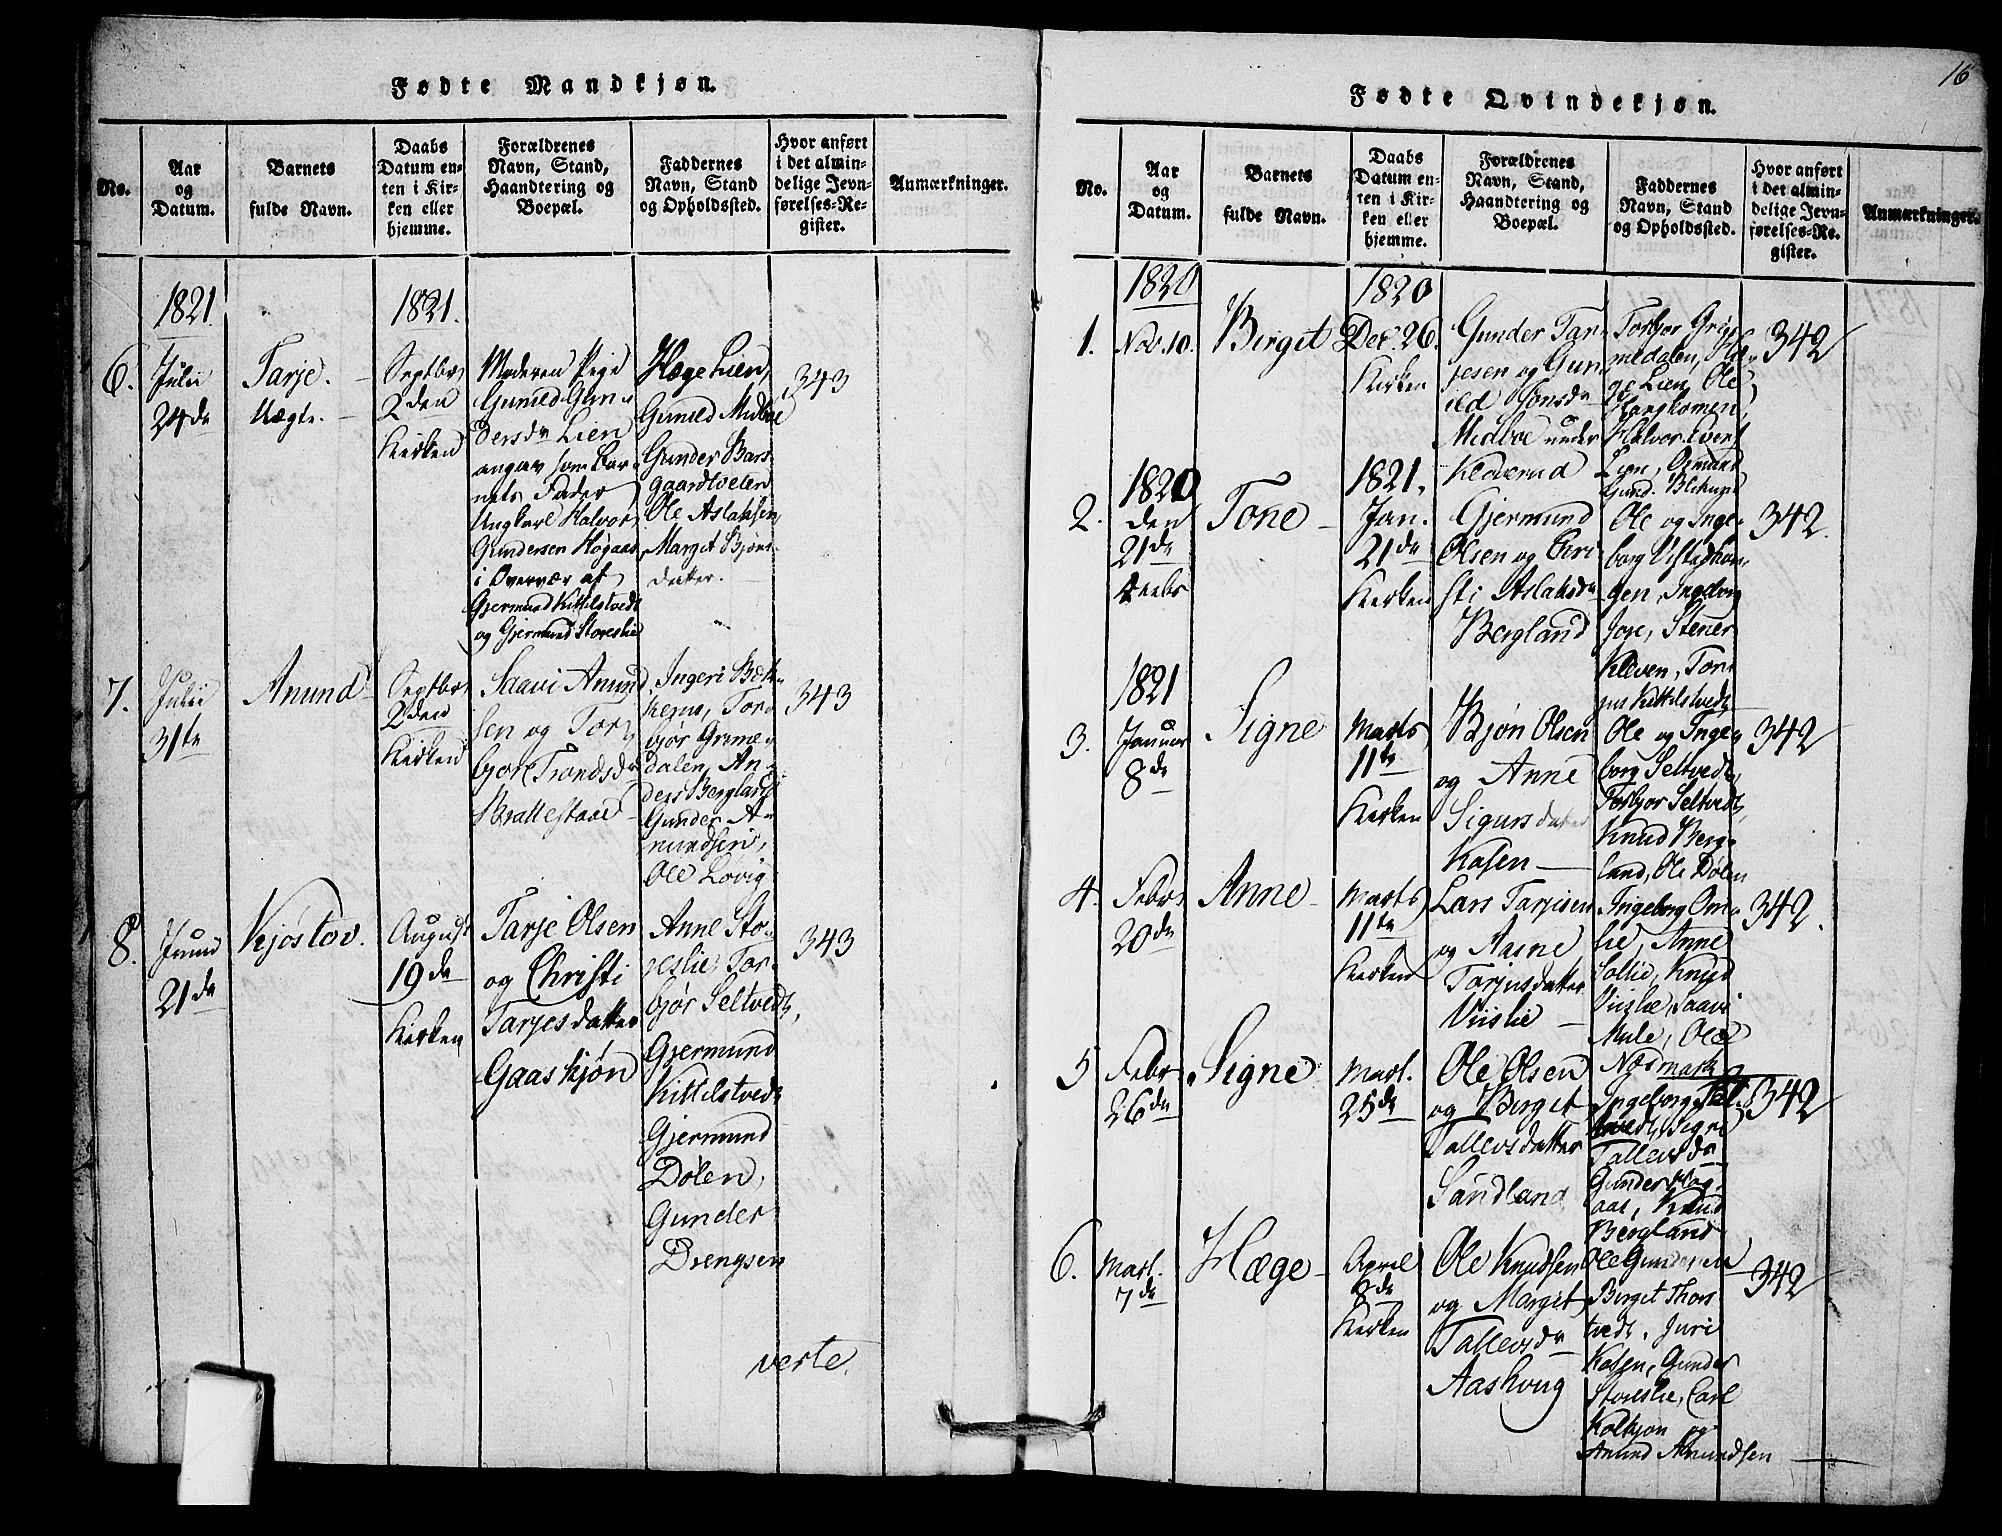 Fødte Mandkjøn.
No.
Aar
og
Datum.
Barnets
fulde Navn.
Daabs
Datum en-
ten i Kir-
ken eller
hjemme.
Forældrenes
Navn, Stand,
Haandtering og
Boepæl.
Faddernes
Navn, Stand
og Opholdssted.
Hvor anført
i det almin-
delige Jevn-
førelses-Re-
gister.
Anmærkninger.
6.
1821.
Julii
24de
Tarje.
Uægte.
1821.
Septbr
2den
Kirken
Moderen Pige
Gunild Gun-
dersdr Lien
angav som Bar-
nets Fader
Ungkarl Halvor
Gundersen Høgaas
i Overvær af
Gjermund Kittilstvedt
og Gjermund Storeslie
Hæge Lien,
Gunild Midboe
Gunder Bas-
gaardtveten
Ole Aslaksen
Marget Bjørns-
datter.
343
7.
Julii
31te
Anund
Septbr
2den
Kirken
Saavi Anund
sen og Tor-
bjør Trondsdr
Brattestaae
Ingeri Bæk-
hejus, Tor-
bjør Grime-
dalen, An-
ders Bergland
Gunder A-
nundsen,
Ole Løvig
343
8.
Juni
21de
Kjøstov.
August
19de
Kirken
Tarje Olsen
og Christi
Tarjesdatter
Gaaskjøn
Anne Sto-
reslie, Tor-
bjør Seltvedt,
Gjermund
Kittelstvedt
Gjermund
Dølen,
Gunder
Drengsen
343
verte.
16
Fødte Qvindekjøn.
No.
Aar
og
Datum.
Barnets
fulde Navn.
Daabs
Datum en-
ten i Kir-
ken eller
hjemme.
Forældrenes
Navn, Stand,
Haandtering og
Boepæl.
Faddernes
Navn, Stand
og Opholdssted.
Hvor anført
i det almin-
delige Jevn-
førelses-Re-
gister.
Anmærkninger.
1.
1820
Nov. 10.
Birget
1820
Dec. 26.
Kirken
Gunder Tar-
jesen og Gun-
ild Jonsdr
Midboe under
Kleverud
Torbjør Grij-
medalen, Hæ-
ge Lien, Ole
Haugkomen,
Halvor Evens
Lien, Osmund
Gund.
342
2.
1820
den
21de
Tone
1821.
Jan.
21de
Kirken
Gjermund
Olsen og Kri-
sti Aslaksdr
Bergland
Ole og Inge-
borg
gen, Ingebor
Jore, Stener
Kleven, Tor-
jus Kittilstvedt
342.
3.
1821
Januar
8de
Signe
Marts
11te
Kirken
Bjøn Olsen
og Anne
Sigursdatter
Kasen
Ole og Inge-
borg Seltvedt,
Torbjør Seltvedt,
Knud Berg-
land, Ole Dølen
342
4.
Febr.
20de
Anne
Marts
11te
Kirken
Lars Tarjesen
og Aasne
Tarjusdatter
Viislie
Ingeborg Om-
lie, Anne
Sollie, Knud
Viislie, Saavi
Mule, Ole
Nordmark
342.
5
Febr
26de
Signe
Mart.
25de
Ole Olsen
og Birget
Tallevsdatter
Sandland
Ingeborg
Signe
Tallevsdr
Gunder Høg-
aas, Knud
Bergland
342
6.
Mart.
7de
Hæge
April
8de
Kirken
Ole Knudsen
og Marget
Tallevsdr
Aashoug
Ole Gundersen
Birget Thors-
tvedt, Juri
Kasen, Gunder
Storeslie, Carl
Kolkjøn og
Anund Anundsen
342